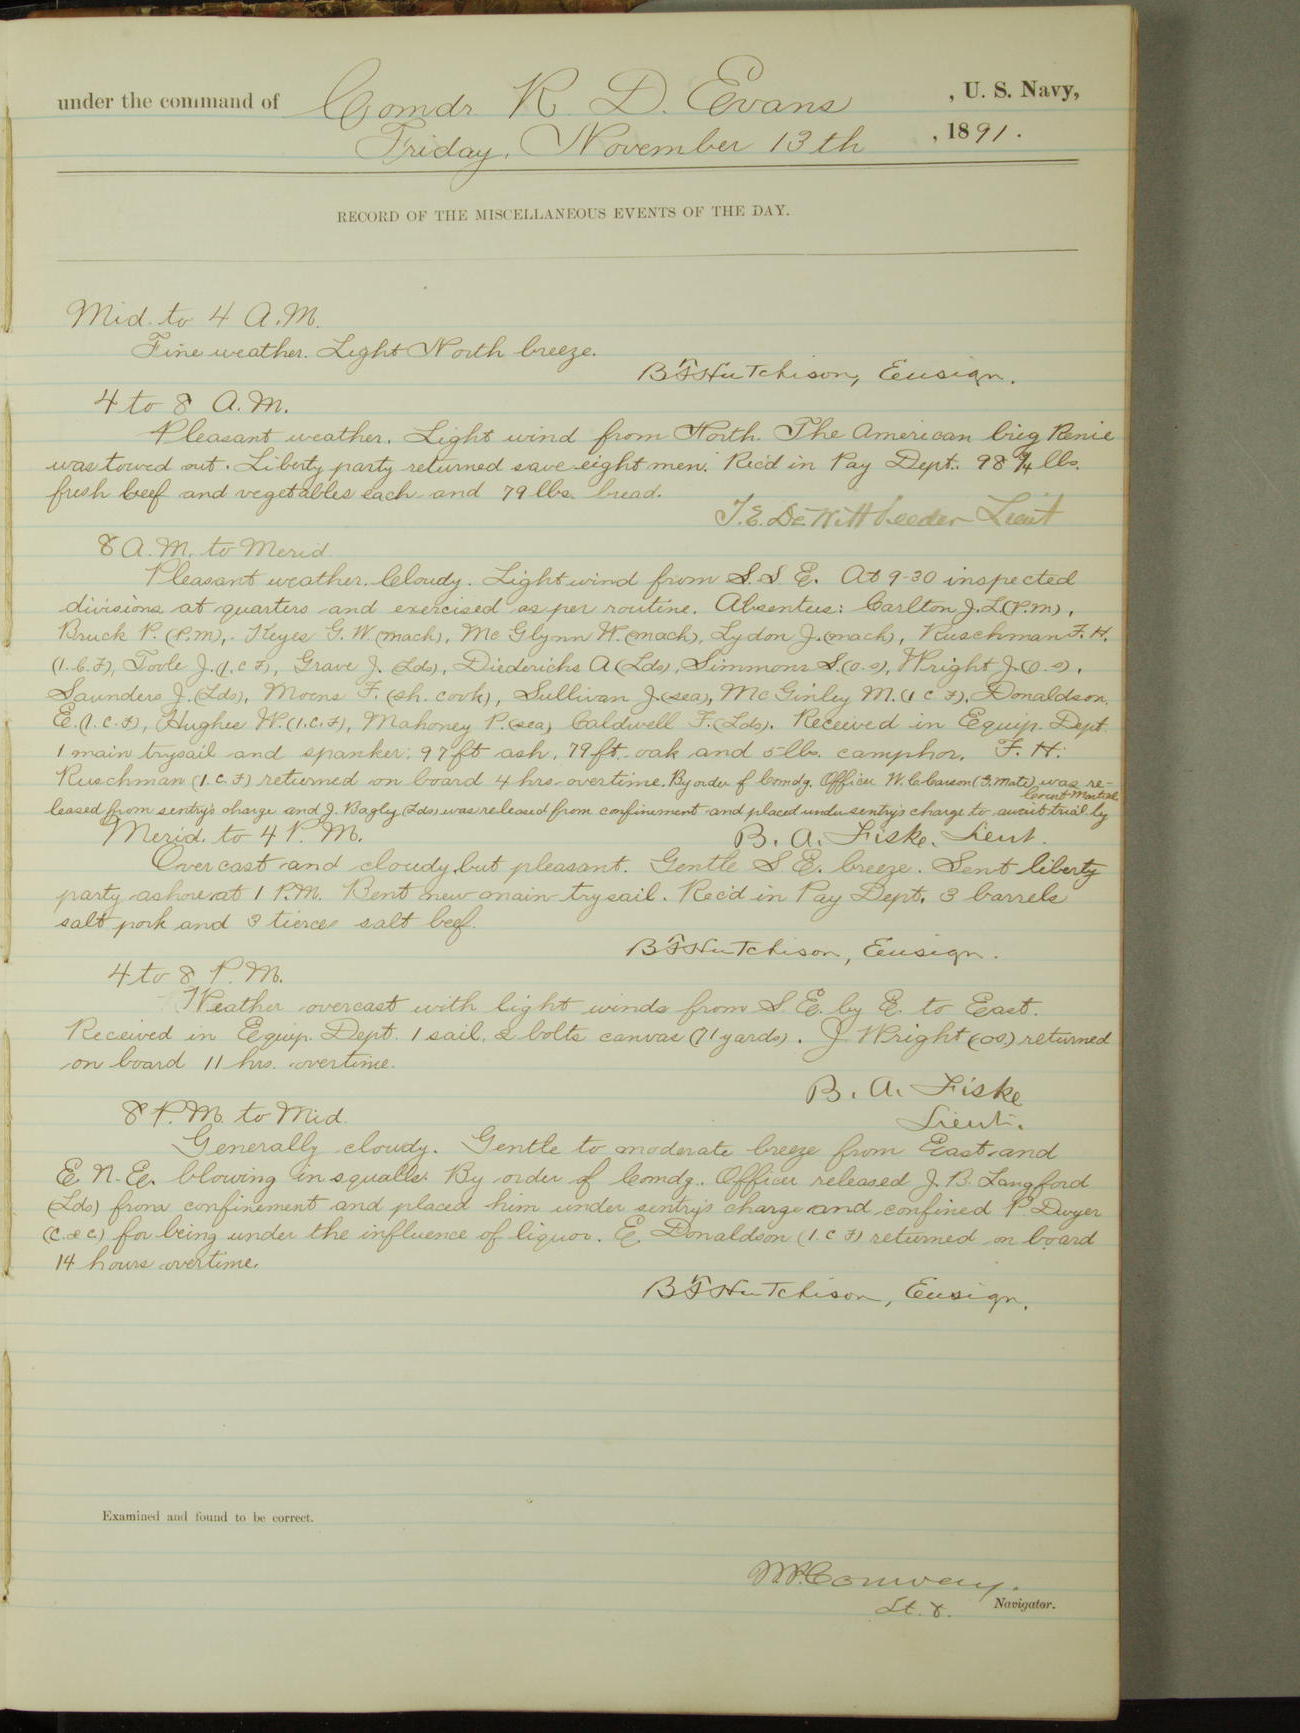 under the command of Comdr R. D. Evans, U. S. Navy,
Friday, November 13th, 1891.
RECORD OF THE MISCELLANEOUS EVENTS OF THE DAY.
Mid. to 4 A.M.
Fine weather. Light North breeze.
B F Hutchison, Ensign.
4 to 8 A.M.
Pleasant weather. Light wind from North. The American brig Renie
was towed out. Liberty party returned save eight men. Rec'd in Pay Dept. 98 3/4 lbs.
fresh beef and vegetables each and 79 lbs. bread.
T. E. DeWitt Veeder Lieut
8 A.M. to Merid.
Pleasant weather. Cloudy. Light wind from S.S.E. At 9-30 inspected
divisions at quarters and exercised as per routine. Absentees: Carlton J. L (P.m),
Bruck P. (P.m), Keyes G. W. (mach), McGlynn W. (mach), Lydon J. (mach), Ruschman F. H.
(1.C.F), Toole J. (1.C.F), Grave J. (Lds), Diederichs A (Lds), Simmons S. (O.S), Wright J. (O.S),
Saunders J. (Lds), Moens F. (sh. cook), Sullivan J. (sea), McGinley M. (1 C F), Donaldson
E. (1.C.F), Hughes W. (1.C.F), Mahoney P. (sea), Caldwell F. (Lds). Received in Equip. Dept.
1 main trysail and spanker, 97 ft ash, 79 ft. oak and 5 lbs. camphor. F. H.
Ruschman (1.C.F) returned on board 4 hrs. overtime. By order of Comdg. Officer W. C. (G. Mate) was re-
leased from sentry's charge and J. Bagley (Lds) was released from confinement and placed under sentry's charge to await trial by Court Martial
Merid. to 4 P.M.
B. A. Fiske. Lieut.
Overcast and cloudy but pleasant. Gentle S E. breeze. Sent liberty
party ashore at 1 P.M. Bent new main trysail. Rec'd in Pay Dept. 3 barrels
salt pork and 3 tierces salt beef.
B F Hutchison, Ensign.
4 to 8 P.M.
Weather overcast with light winds from S. E. by E. to East.
Received in Equip. Dept. 1 sail, 2 bolts canvas (71 yards). J. Wright (OS) returned
on board 11 hrs. overtime.
B. A. Fiske
Lieut.
8 P.M. to Mid.
Generally cloudy. Gentle to moderate breeze from East and
E. N. E. blowing in squalls. By order of Comdg. Officer released J. B. Langford
(Lds) from confinement and placed him under sentry's charge and confined P. Dwyer
(C. & C.) for being under the influence of liquor. E. Donaldson (1 C F) returned on board
14 hours overtime.
B F Hutchison, Ensign.
Examined and found to be correct.
W. P. Conway.
Lt. & Navigator.